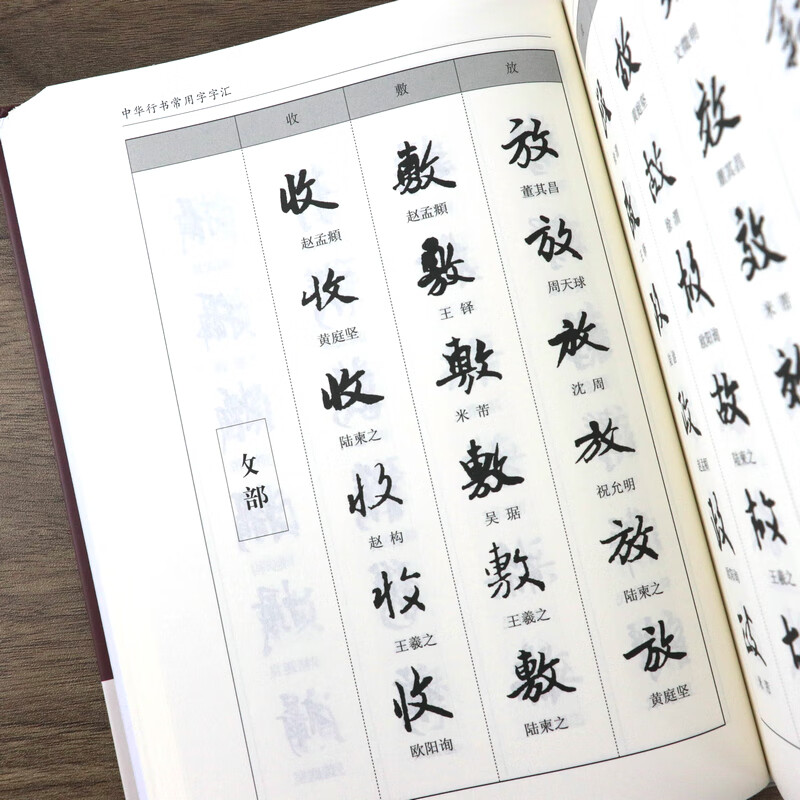 中华行书常用字字汇
收 敷 放
攵部
收 敷 放
赵孟頫 赵孟頫 董其昌
收 敷 放
黄庭坚 王铎 周天球
收 敷 放
陆柬之 米芾 沈周
收 敷 放
赵构 吴琚 祝允明
收 敷 放
王羲之 王羲之 陆柬之
收 敷 放
欧阳询 陆柬之 黄庭坚
故 效
文徵明
董其昌
米芾
欧阳询
陆柬之
王羲之